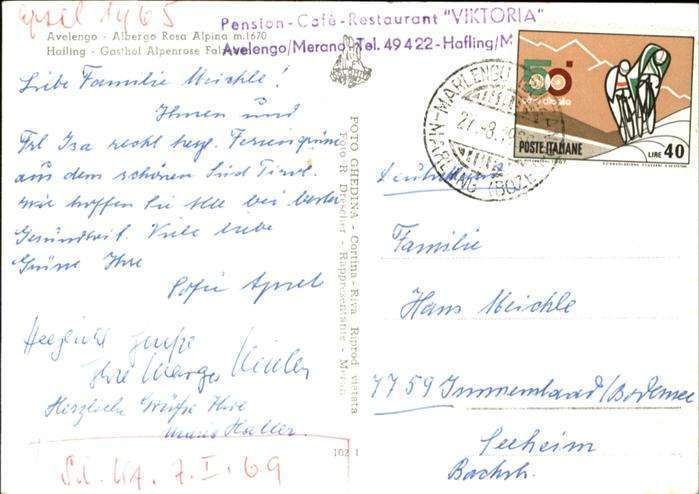 Apsel 1965
Avelengo - Albergo Rosa Alpina m.1670
Hafling - Gasthof Alpenrose
Pension-Café-Restaurant "VIKTORIA"
Avelengo/Merano-Tel. 49422-Hafling/M
Liebe Familie Meichle!
Ihnen und
Frl Isa recht herzl. Feriengrüße
aus dem schönen Süd Tirol.
Wir hoffen Sie alle bei bester
Gesundheit. Viele liebe
Grüsse Ihre
Sofie Apsel
Herzliche Grüße
Ihre
Herzliche Grüße Ihre
Maria
St. KA. 7.I.69
FOTO GHEDINA - Cortina-Riva Riprod vietata
Foto R. Drescher - Rappresentante - Meran
102 1
MARLENGO
MARLING (BOZEN)
50°
POSTE ITALIANE
LIRE 40
Familie
Hans Meichle
7759 Immenstaad/Bodensee
Seeheim
Bachstr.